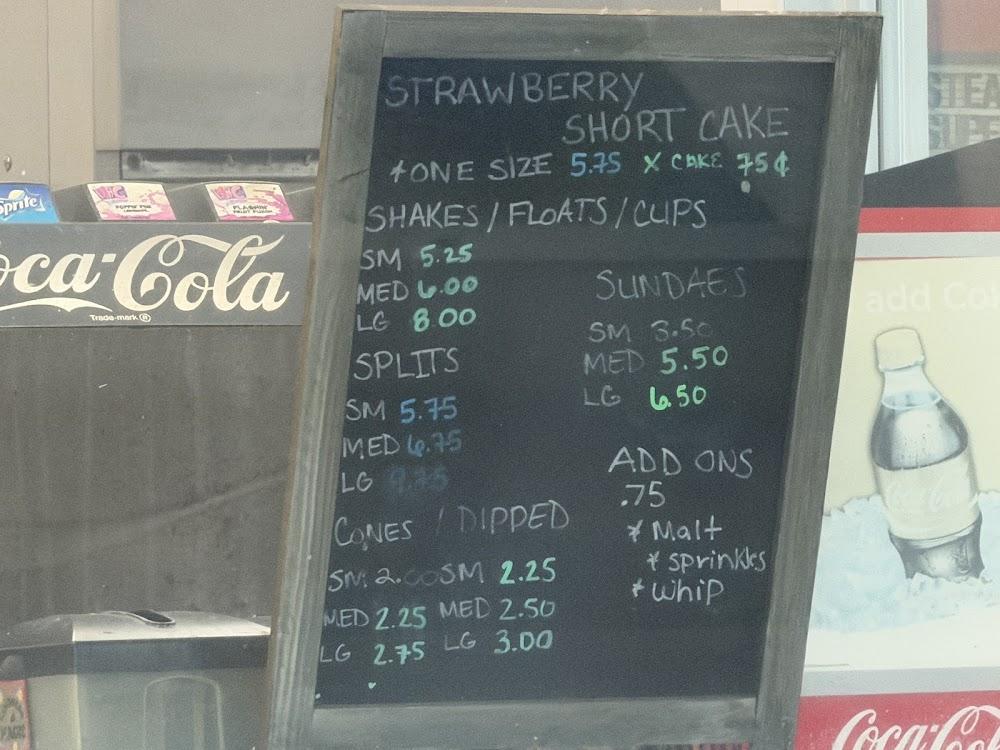 STRAWBERRY
SHORT CAKE
*ONE SIZE 5.75 X CAKE 75¢
SHAKES / FLOATS / CUPS
SM 5.25
MED 6.00
LG 8.00
SPLITS
SM 5.75
MED 6.75
LG 9.75
CONES / DIPPED
SM 2.00 SM 2.25
MED 2.25 MED 2.50
LG 2.75 LG 3.00
SUNDAES
SM 3.50
MED 5.50
LG 6.50
ADD ONS
.75
* Malt
* sprinkles
* whip
Sprite
oca-Cola
Trade-mark ®
add Col
Coca-Cola